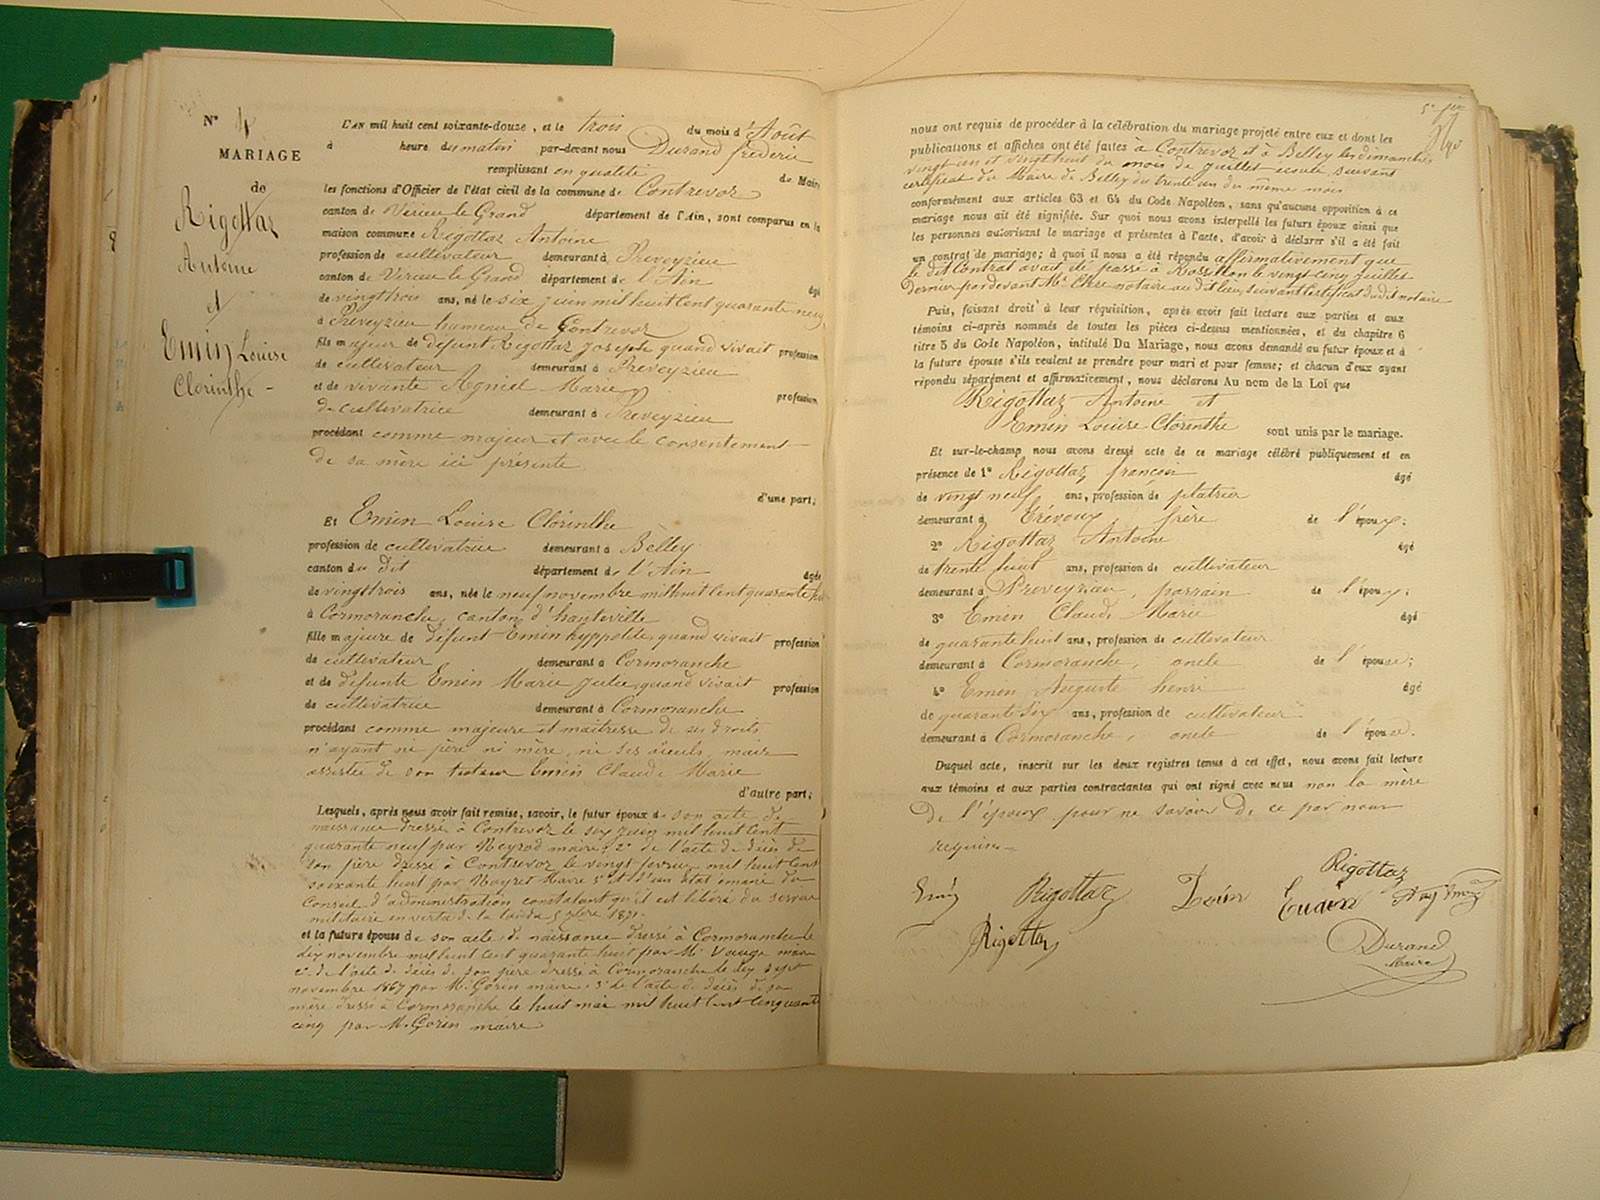 N° 4
MARIAGE
de
Rigottaz
Antoine
et
Emin Louise
Clorinthe
L'AN mil huit cent soixante-douze, et le trois du mois d'Août
à heure du matin par-devant nous Durand frédéric
remplissant en qualité de Maire
les fonctions d'Officier de l'état civil de la commune de Contrevoz
canton de Virieu le Grand département de l'Ain, sont comparus en la
maison commune Rigottaz Antoine
profession de cultivateur demeurant à Preveyzieu
canton de Virieu le Grand département de l'Ain âgé
de vingt trois ans, né le six juin mil huit cent quarante neuf
à Preveyzieu hameau de Contrevoz
fils majeur de défunt Rigottaz Joseph quand vivait profession
de cultivateur demeurant à Preveyzieu
et de vivante Agniel Marie profession
de cultivatrice demeurant à Preveyzieu
procédant comme majeur et avec le consentement
de sa mère ici présente
d'une part;
Et Emin Louise Clorinthe
profession de cultivatrice demeurant à Belley
canton du dit département de l'Ain âgée
de vingt trois ans, née le neuf novembre mil huit cent quarante hu
à Cormoranche, canton d'hauteville
fille majeure de défunt Emin hyppolite, quand vivait profession
de cultivateur demeurant à Cormoranche
et de défunte Emin Marie Julie, quand vivait profession
de cultivatrice demeurant à Cormoranche
procédant comme majeure et maitresse de ses droits
n'ayant ni père ni mère, ni ses aïeuls, mais
assistée de son tuteur Emin Claude Marie
d'autre part;
Lesquels, après nous avoir fait remise, savoir, le futur époux de son acte de
naissance dressé à Contrevoz le six juin mil huit cent
quarante neuf par Neyrod maire; 2° de l'acte de décès de
son père dressé à Contrevoz le vingt février mil huit cent
soixante huit par Mayret Maire 3° Et d'un état émané du
Conseil d'administration constatant qu'il est libéré du service
militaire en vertu de la loi du 5 7bre 1871.
et la future épouse de son acte de naissance dressé à Cormoranche le
dix novembre mil huit cent quarante huit par Mr Vauge maire
2° de l'acte de décès de son père dressé à Cormoranche le dix sept
novembre 1867 par M. Gorin maire; 3° de l'acte de décès de sa
mère dressé à Cormoranche le huit mai mil huit cent cinquante
cinq par M. Gorin maire
nous ont requis de procéder à la célébration du mariage projeté entre eux et dont les
publications et affiches ont été faites à Contrevoz et à Belley les dimanches
vingt un et vingt huit du mois de juillet écoulé suivant
certificat du Maire de Belley du trente un du même mois
conformément aux articles 63 et 64 du Code Napoléon, sans qu'aucune opposition à ce
mariage nous ait été signifiée. Sur quoi nous avons interpellé les futurs époux ainsi que
les personnes autorisant le mariage et présentes à l'acte, d'avoir à déclarer s'il a été fait
un contrat de mariage; à quoi il nous a été répondu affirmativement que
le dit Contrat avait été passé à Rossillon le vingt cinq juillet
dernier par devant Me notaire au dit lieu, suivant certificat dudit notaire
Puis, faisant droit à leur réquisition, après avoir fait lecture aux parties et aux
témoins ci-après nommés de toutes les pièces ci-dessus mentionnées, et du chapitre 6
titre 5 du Code Napoléon, intitulé Du Mariage, nous avons demandé au futur époux et à
la future épouse s'ils veulent se prendre pour mari et pour femme; et chacun d'eux ayant
répondu séparément et affirmativement, nous déclarons Au nom de la Loi que
Rigottaz Antoine et
Emin Louise Clorinthe sont unis par le mariage.
Et sur-le-champ nous avons dressé acte de ce mariage célébré publiquement et en
présence de 1° Rigottaz françois âgé
de vingt neuf ans, profession de platrier
demeurant à Trévoux frère de l'époux;
2° Rigottaz Antoine âgé
de trente huit ans, profession de cultivateur
demeurant à Preveyzieu, parrain de l'époux;
3° Emin Claude Marie âgé
de quarante huit ans, profession de cultivateur
demeurant à Cormoranche, oncle de l'épouse;
4° Emin Auguste henri âgé
de quarante six ans, profession de cultivateur
demeurant à Cormoranche, oncle de l'épouse.
Duquel acte, inscrit sur les deux registres tenus à cet effet, nous avons fait lecture
aux témoins et aux parties contractantes qui ont signé avec nous non la mère
de l'époux pour ne savoir de ce par nous
requise
Rigottaz
Emin Rigottaz
Rigottaz
Durand
Maire